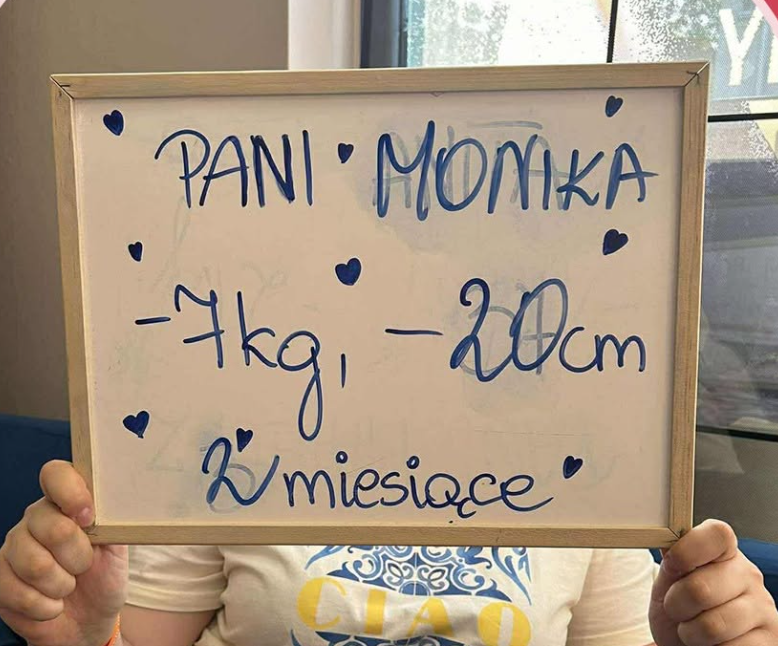 PANI MONIKA
-7kg, -20cm
2 miesiące
CIAO